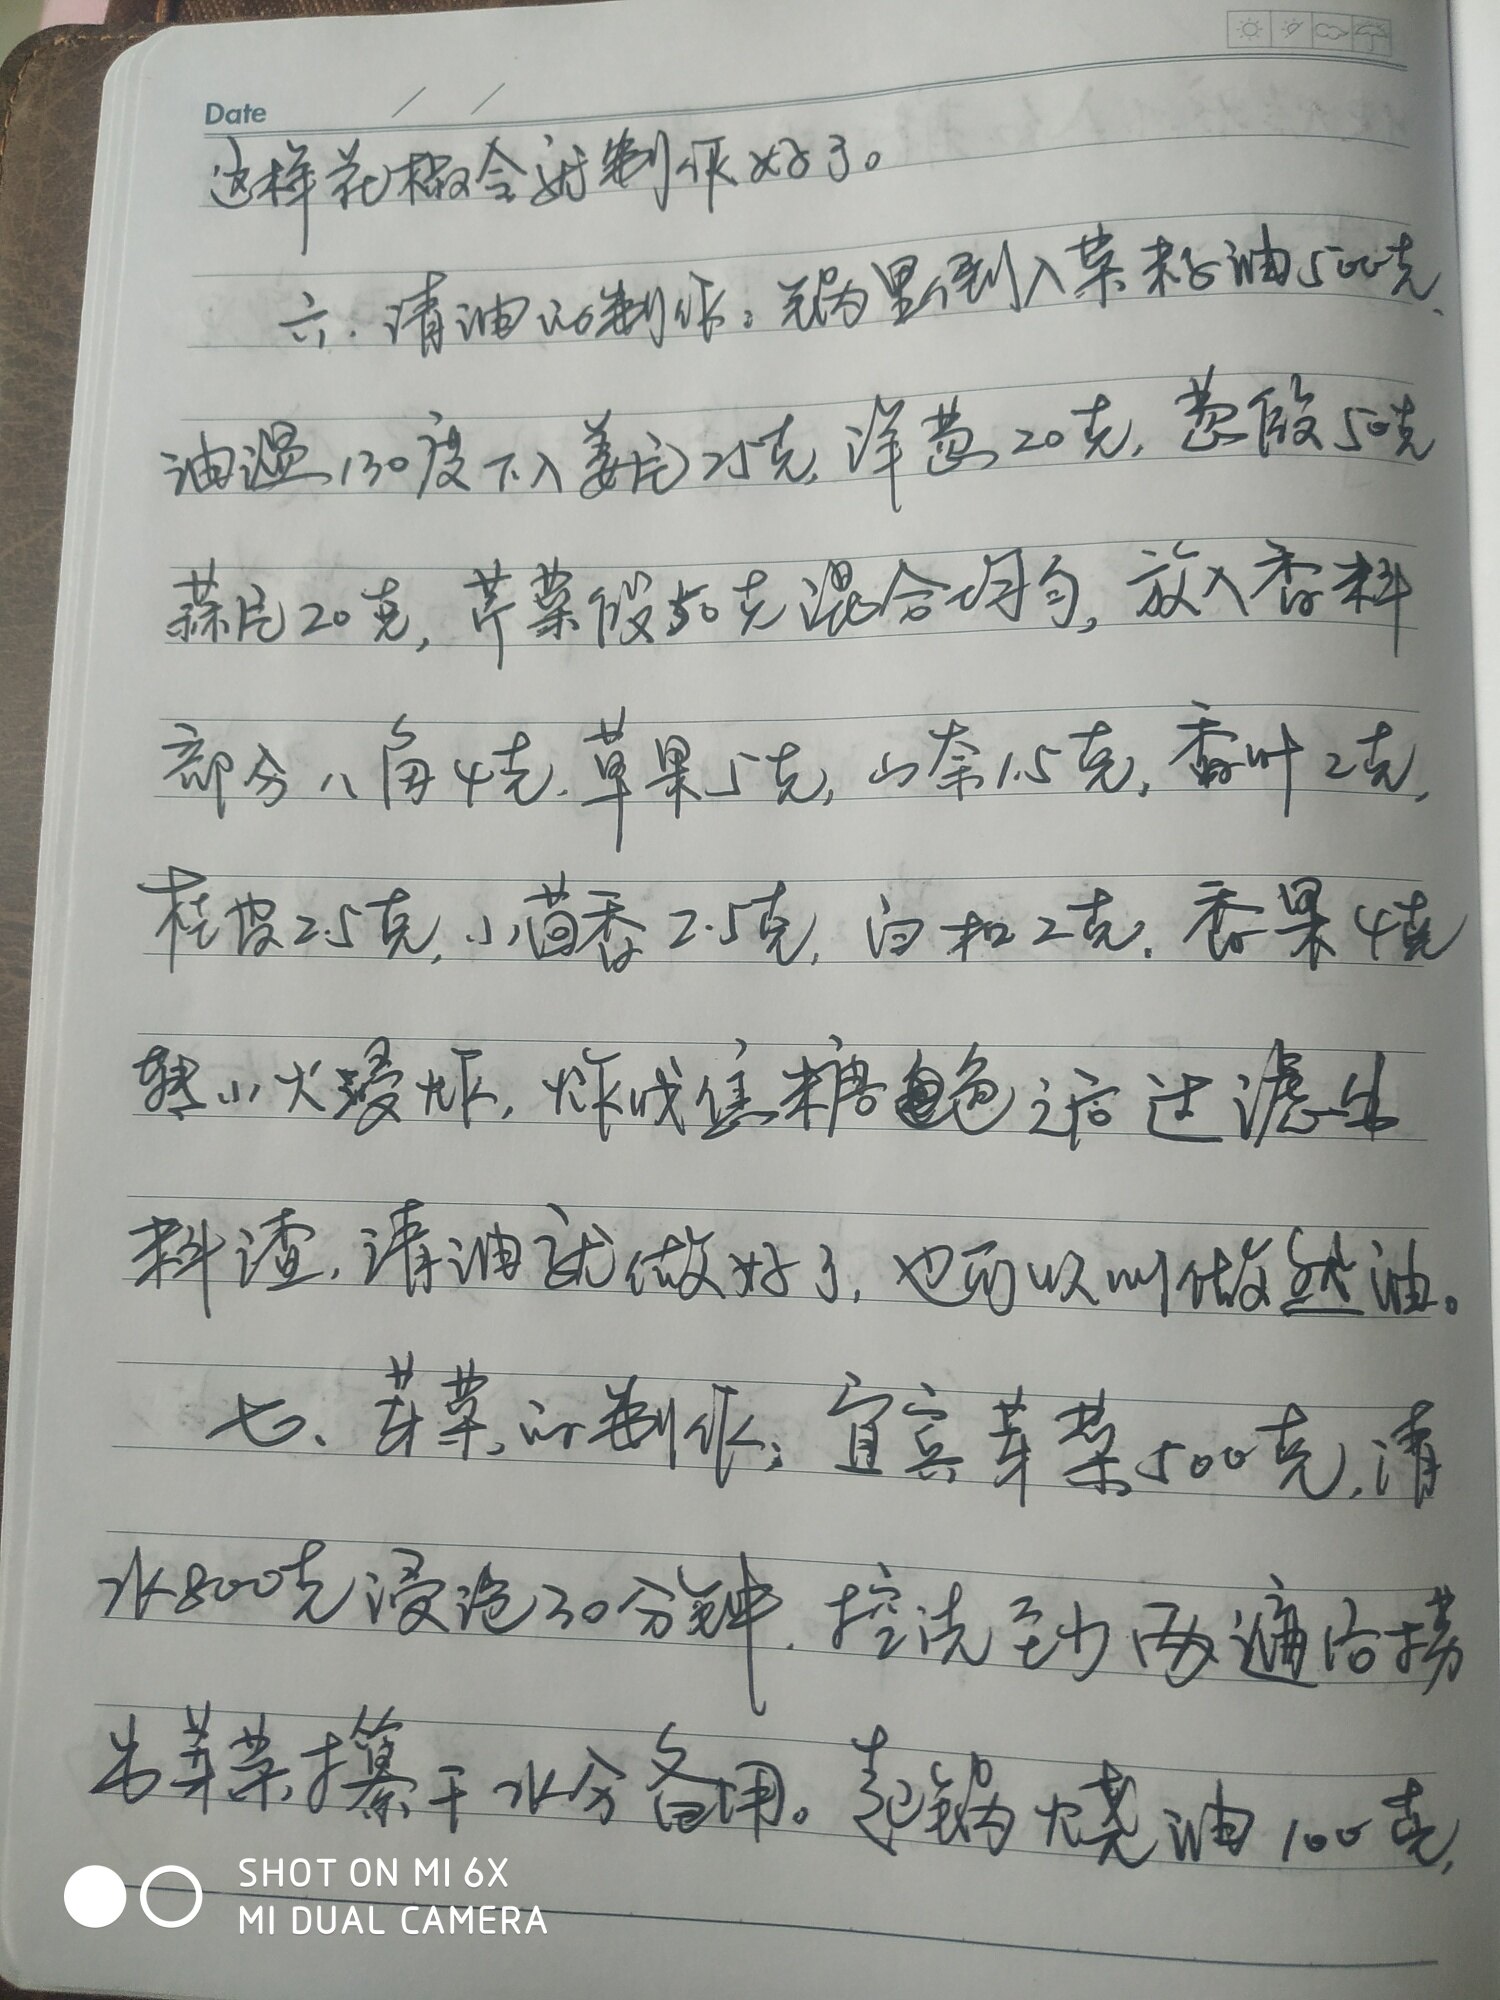 Date / /
这样花椒会就制作好了。
六.清油的制作:锅里倒入菜籽油500克、
油温130度下入姜片25克,洋葱20克,葱段50克
蒜片20克,芹菜段50克混合均匀,放入香料
部分八角4克.草果5克,山奈1.5克,香叶2克,
桂皮2.5克,小茴香2.5克,白扣2克.香果4克
转小火慢炸,炸成焦糖色之后过滤出
料渣,清油就做好了,也可以叫做然油。
七、芽菜的制作:宜宾芽菜500克,清
水800克浸泡30分钟.控洗至少两遍后捞
出芽菜,攥干水分备用。起锅烧油100克,
SHOT ON MI 6X
MI DUAL CAMERA